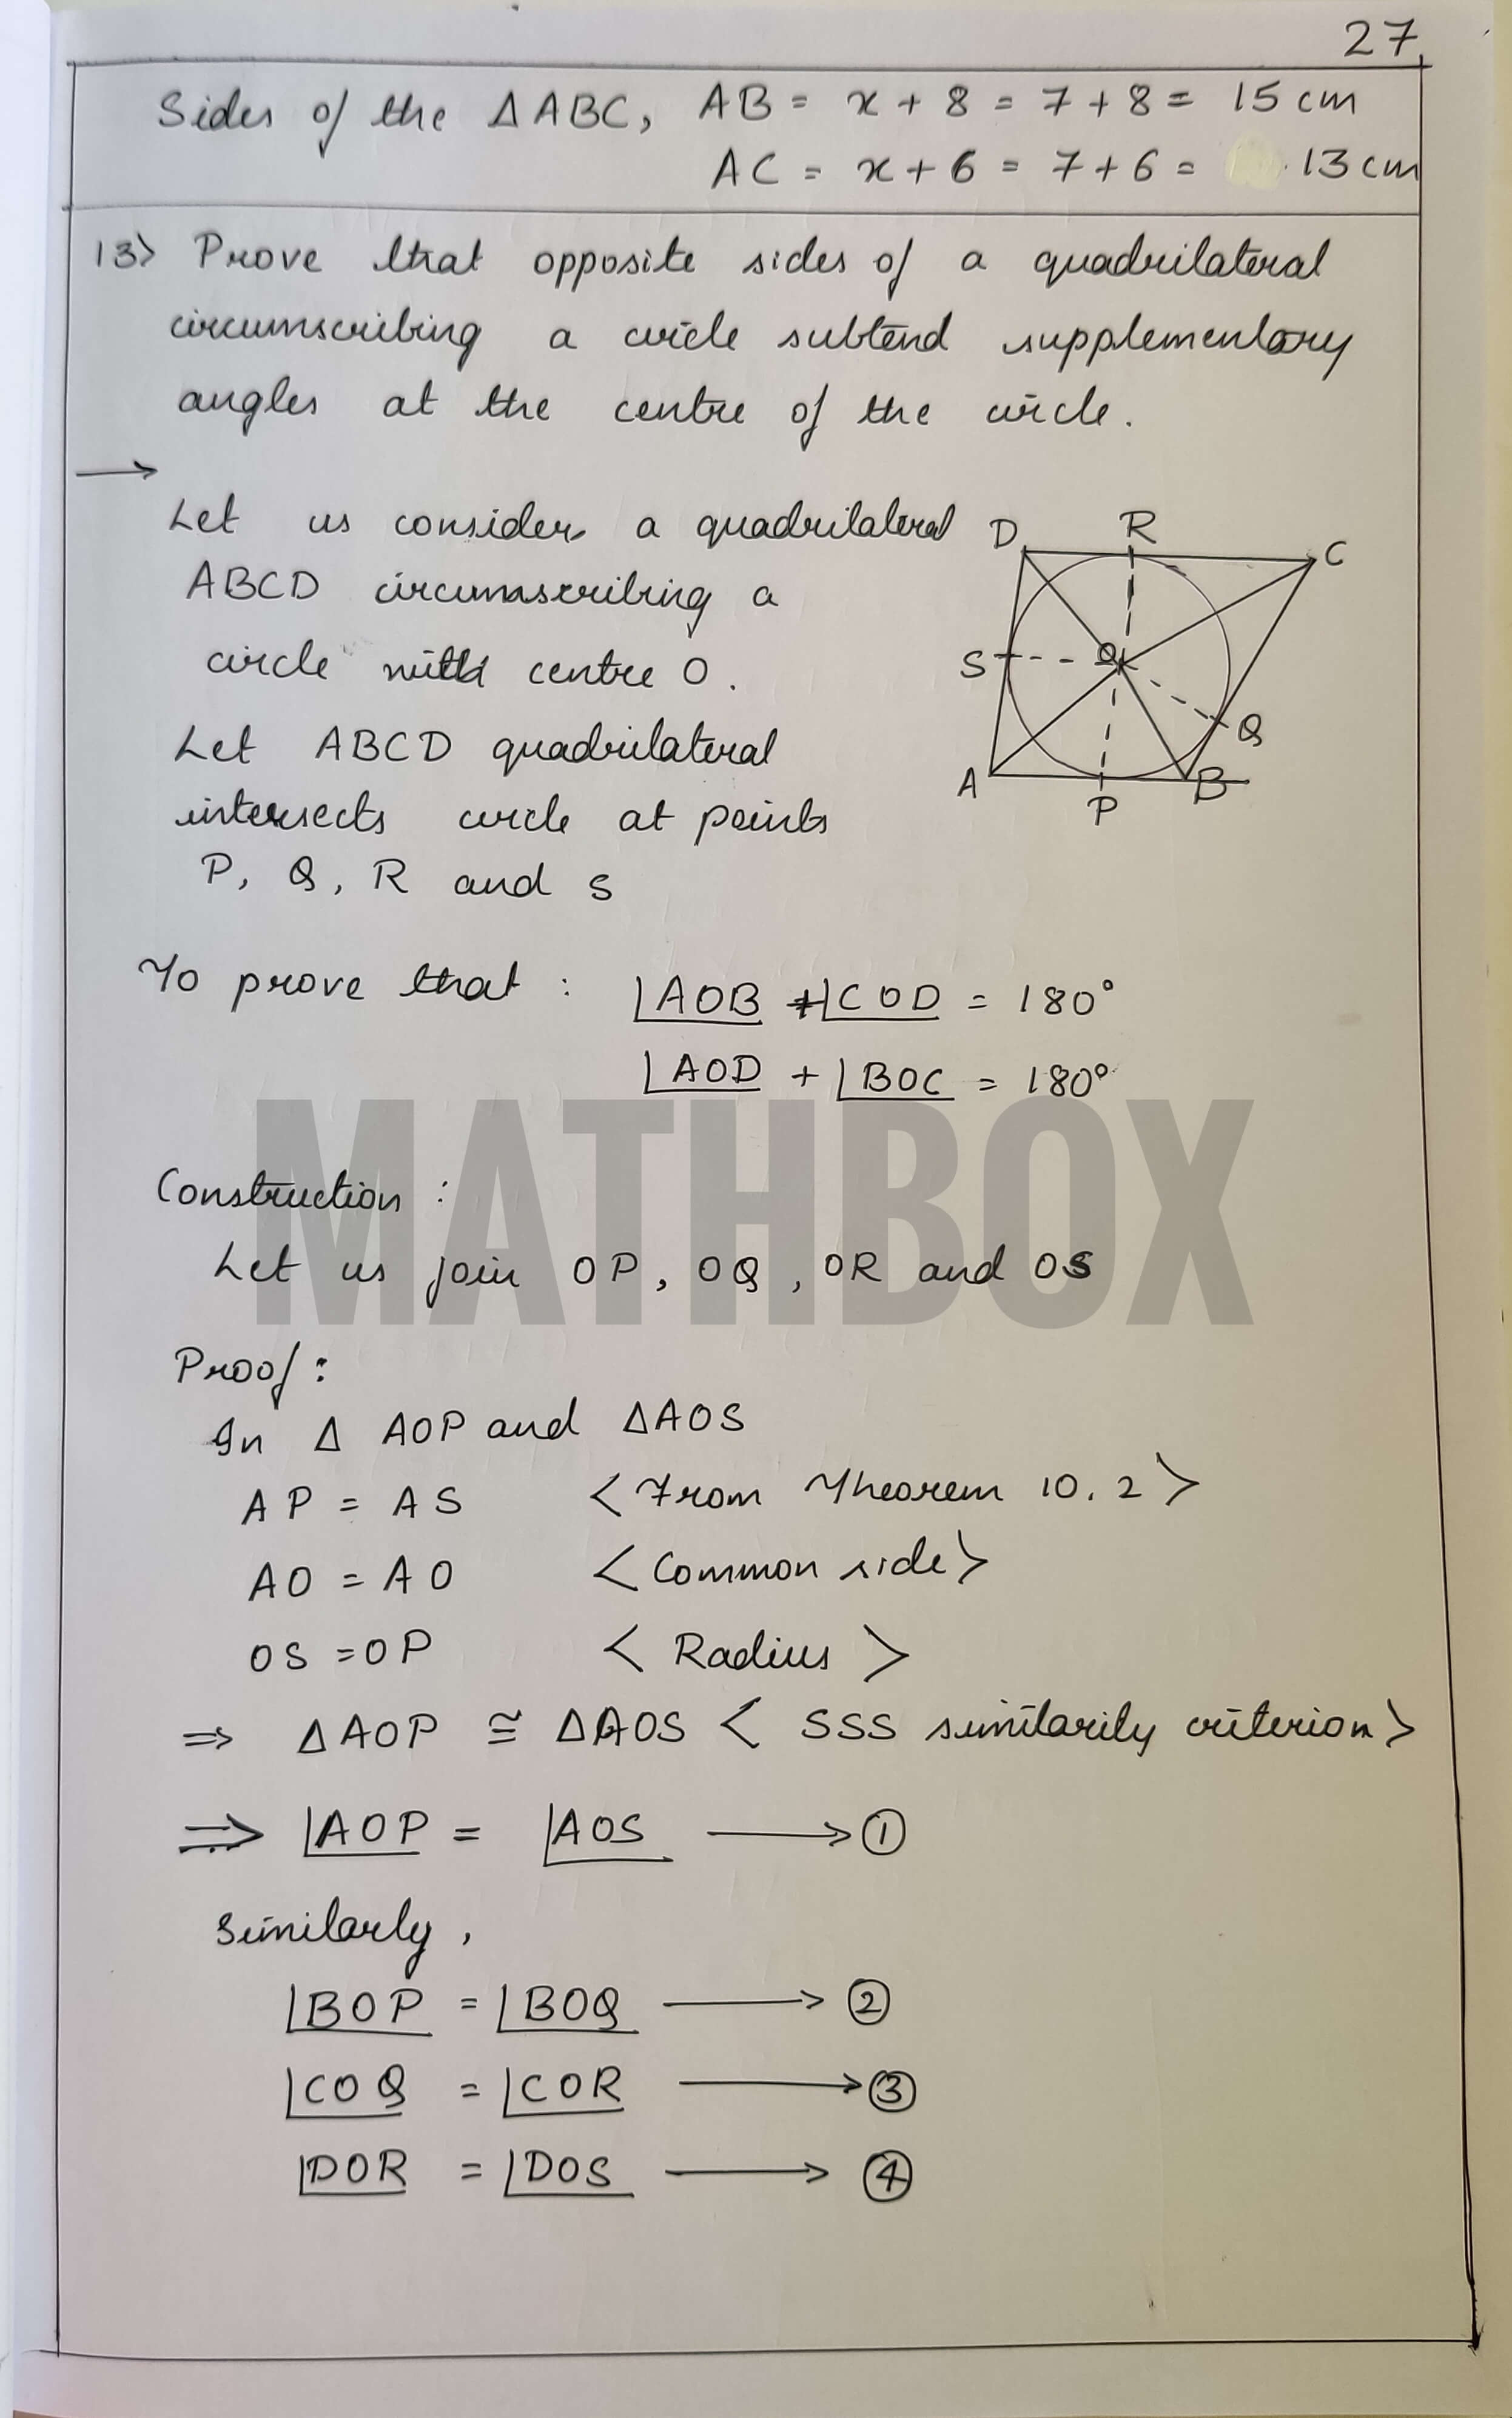 27
Sides of the ΔABC, AB = x + 8 = 7 + 8 = 15 cm
AC = x + 6 = 7 + 6 = 13 cm
13> Prove that opposite sides of a quadrilateral
circumscribing a circle subtend supplementary
angles at the centre of the circle.
→
Let us consider a quadrilateral
ABCD circumscribing a
circle with centre O.
Let ABCD quadrilateral
intersects circle at points
P, Q, R and S
D R C
S O
Q
A P B
To prove that : ∠AOB + ∠COD = 180°
∠AOD + ∠BOC = 180°
MATHBOX
Construction :
Let us join OP, OQ, OR and OS
Proof :
In Δ AOP and ΔAOS
AP = AS < From Theorem 10.2 >
AO = AO < Common side >
OS = OP < Radius >
⇒ ΔAOP ≅ ΔAOS < SSS similarity criterion >
⇒ ∠AOP = ∠AOS → ①
Similarly,
∠BOP = ∠BOQ → ②
∠COQ = ∠COR → ③
∠DOR = ∠DOS → ④